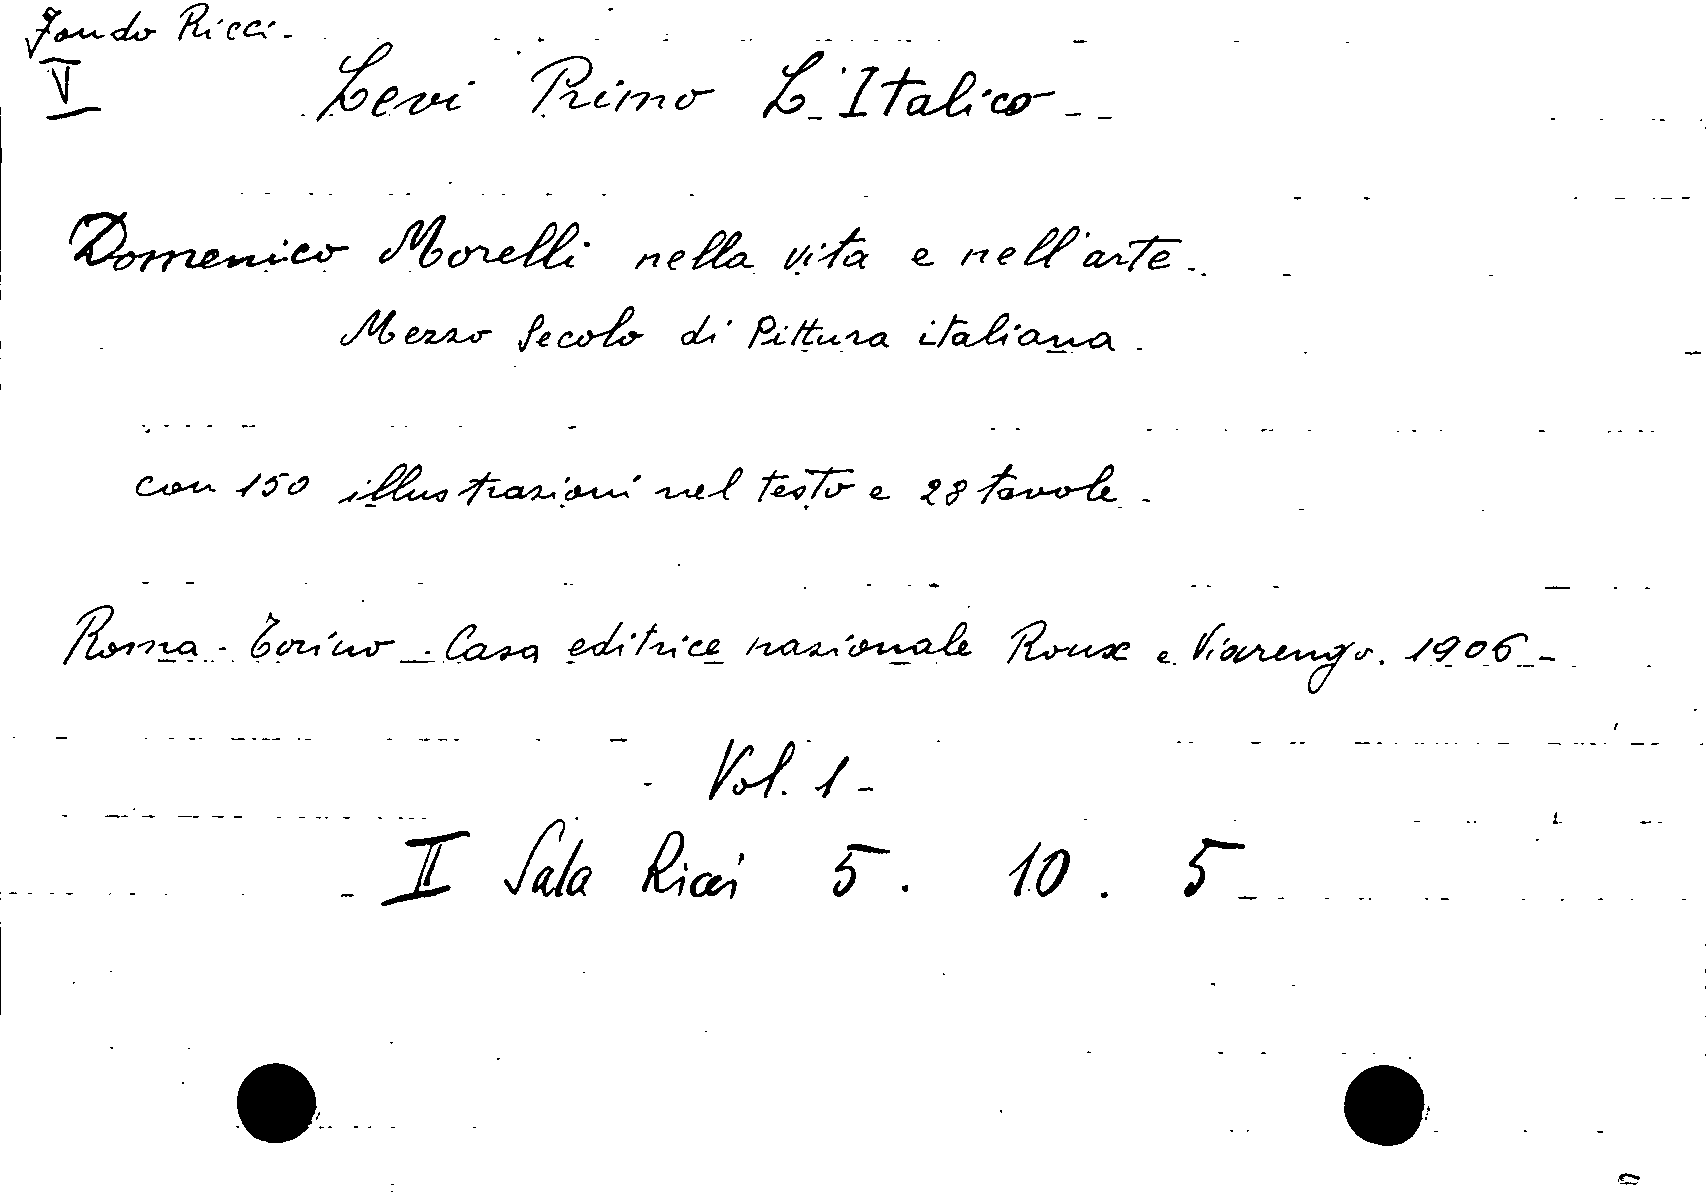 Fondo Ricci -
V
Levi Primo L'Italico -
Domenico Morelli nella vita e nell'arte -
Mezzo Secolo di Pittura italiana.
con 150 illustrazioni nel testo e 28 tavole -
Roma - Torino - Casa editrice nazionale Roux e Viarengo. 1906 -
Vol. 1 -
II Sala Ricci 5. 10. 5